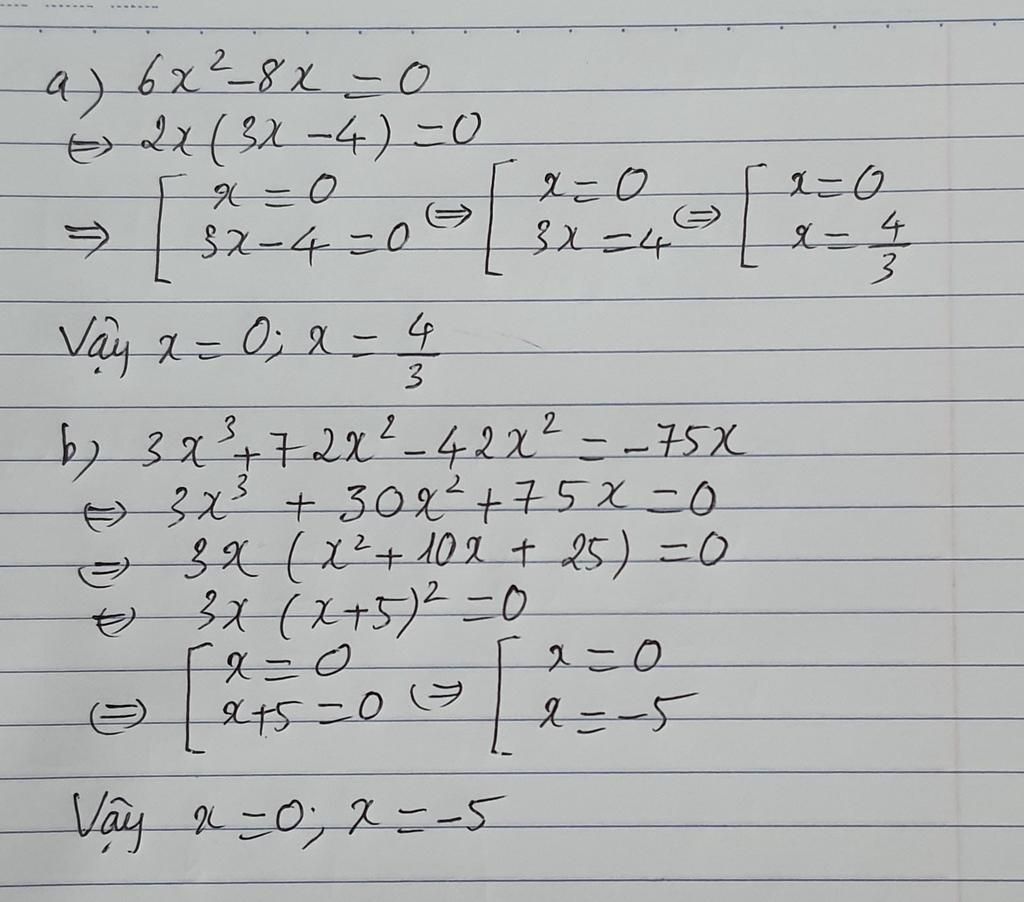 a) 6x² - 8x = 0
⇔ 2x (3x - 4) = 0
⇒ [ x = 0 ; 3x - 4 = 0 ⇔ [ x = 0 ; 3x = 4 ⇔ [ x = 0 ; x = 4/3
Vậy x = 0; x = 4/3
b) 3x³ + 72x² - 42x² = -75x
⇔ 3x³ + 30x² + 75x = 0
⇔ 3x (x² + 10x + 25) = 0
⇔ 3x (x+5)² = 0
⇔ [ x = 0 ; x+5 = 0 ⇔ [ x = 0 ; x = -5
Vậy x = 0; x = -5